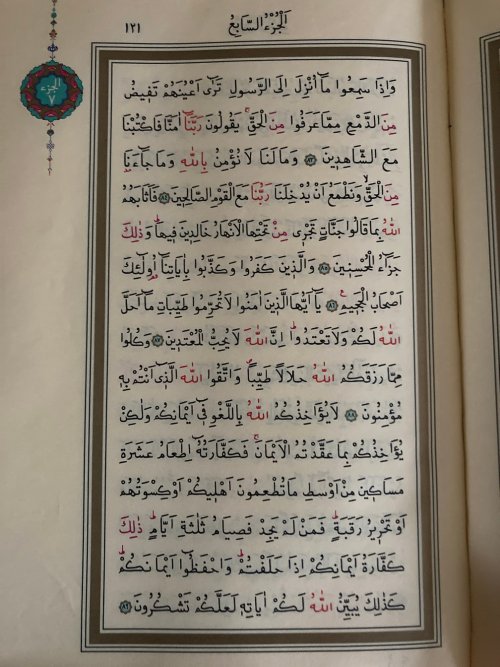 ١٢١ اَلْجُزْءُ السَّابِعُ
اَلْجُزْءُ ٧
وَاِذَا سَمِعُوا مَٓا اُنْزِلَ اِلَى الرَّسُولِ تَرٰٓى اَعْيُنَهُمْ تَفٖيضُ
مِنَ الدَّمْعِ مِمَّا عَرَفُوا مِنَ الْحَقِّۚ يَقُولُونَ رَبَّنَٓا اٰمَنَّا فَاكْتُبْنَا
مَعَ الشَّاهِدٖينَ ﴿٨٣﴾ وَمَا لَنَا لَا نُؤْمِنُ بِاللّٰهِ وَمَا جَٓاءَنَا
مِنَ الْحَقِّۙ وَنَطْمَعُ اَنْ يُدْخِلَنَا رَبُّنَا مَعَ الْقَوْمِ الصَّالِحٖينَ ﴿٨٤﴾ فَاَثَابَهُمُ
اللّٰهُ بِمَا قَالُوا جَنَّاتٍ تَجْرٖى مِنْ تَحْتِهَا الْاَنْهَارُ خَالِدٖينَ فٖيهَاۜ وَذٰلِكَ
جَزَٓاءُ الْمُحْسِنٖينَ ﴿٨٥﴾ وَالَّذٖينَ كَفَرُوا وَكَذَّبُوا بِاٰيَاتِنَٓا اُو۬لٰٓئِكَ
اَصْحَابُ الْجَحٖيمِ۟ ﴿٨٦﴾ يَٓا اَيُّهَا الَّذٖينَ اٰمَنُوا لَا تُحَرِّمُوا طَيِّبَاتِ مَٓا اَحَلَّ
اللّٰهُ لَكُمْ وَلَا تَعْتَدُواۜ اِنَّ اللّٰهَ لَا يُحِبُّ الْمُعْتَدٖينَ ﴿٨٧﴾ وَكُلُوا
مِمَّا رَزَقَكُمُ اللّٰهُ حَلَالًا طَيِّبًاۖ وَاتَّقُوا اللّٰهَ الَّذٖٓى اَنْتُمْ بِهٖ
مُؤْمِنُونَ ﴿٨٨﴾ لَا يُؤَاخِذُكُمُ اللّٰهُ بِاللَّغْوِ فٖٓى اَيْمَانِكُمْ وَلٰكِنْ
يُؤَاخِذُكُمْ بِمَا عَقَّدْتُمُ الْاَيْمَانَۚ فَكَفَّارَتُهُٓ اِطْعَامُ عَشَرَةِ
مَسَاكٖينَ مِنْ اَوْسَطِ مَا تُطْعِمُونَ اَهْلٖيكُمْ اَوْ كِسْوَتُهُمْ
اَوْ تَحْرٖيرُ رَقَبَةٍۜ فَمَنْ لَمْ يَجِدْ فَصِيَامُ ثَلٰثَةِ اَيَّامٍۜ ذٰلِكَ
كَفَّارَةُ اَيْمَانِكُمْ اِذَا حَلَفْتُمْۜ وَاحْفَظُٓوا اَيْمَانَكُمْۜ
كَذٰلِكَ يُبَيِّنُ اللّٰهُ لَكُمْ اٰيَاتِهٖ لَعَلَّكُمْ تَشْكُرُونَ ﴿٨٩﴾